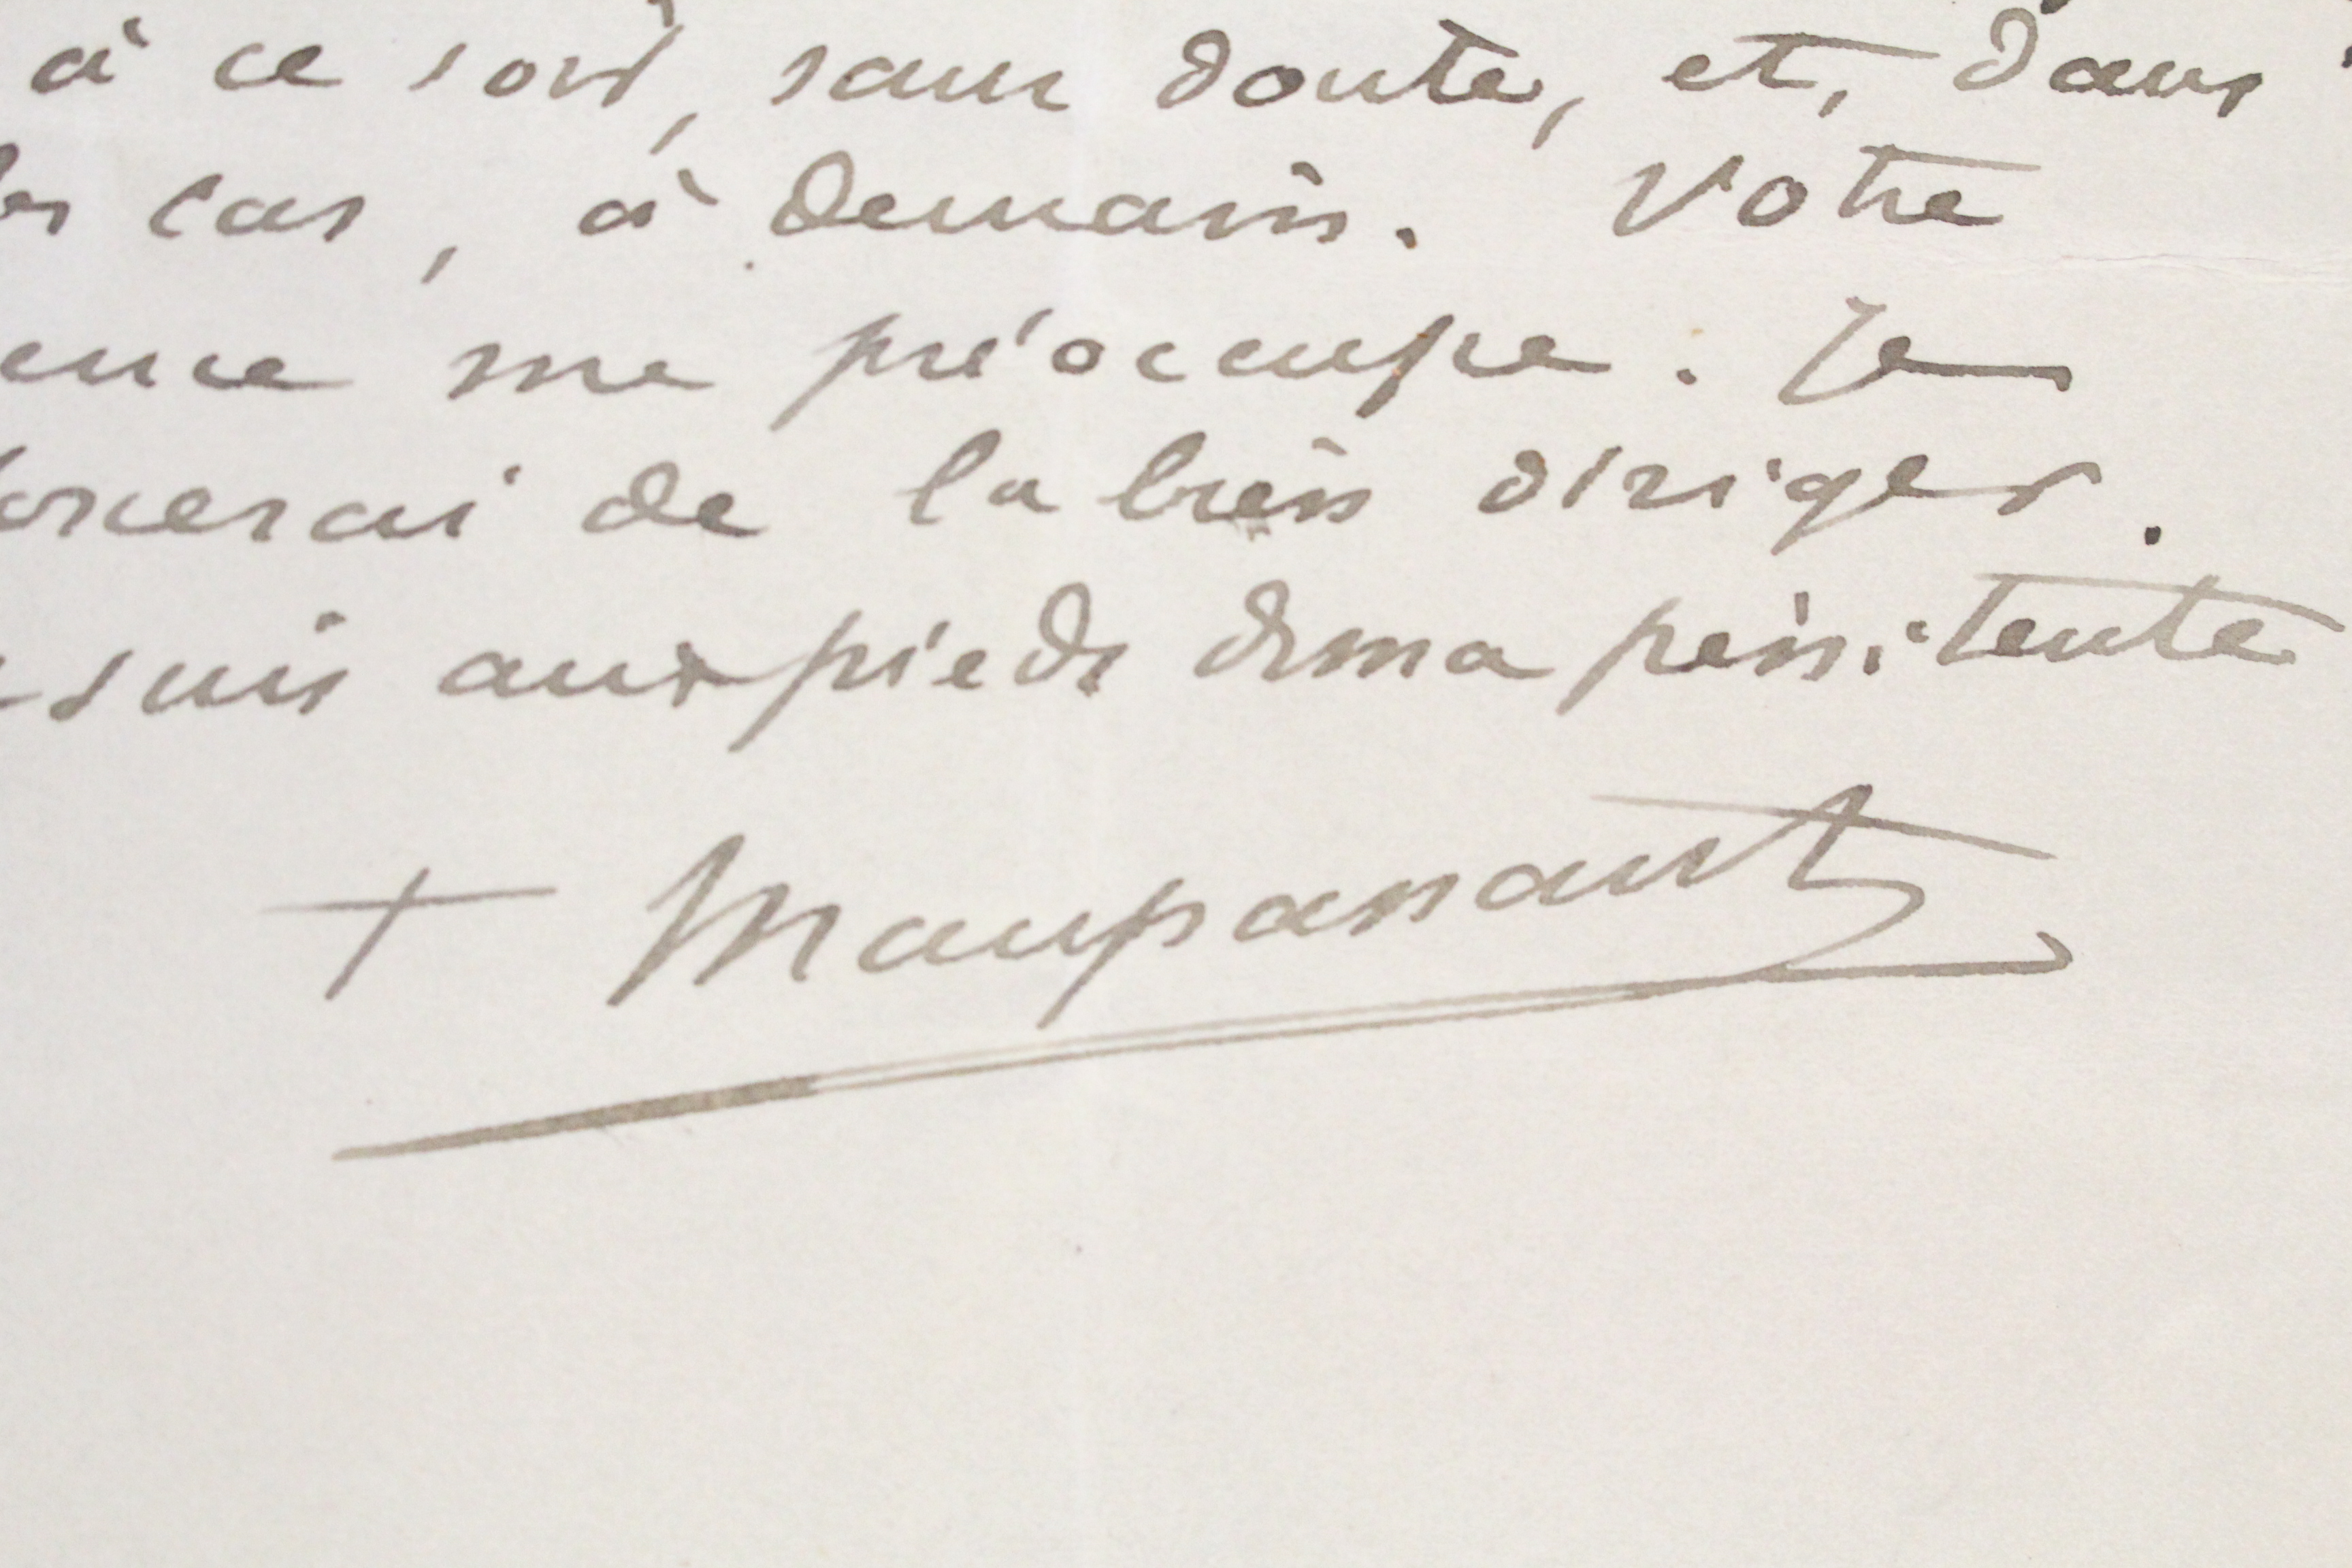 à ce soir, sans doute, et, dans
cas, à demain. Votre
ence me préoccupe. Je
orcerai de la bien diriger.
suis aux pieds de ma pénitente
+ Maupassant